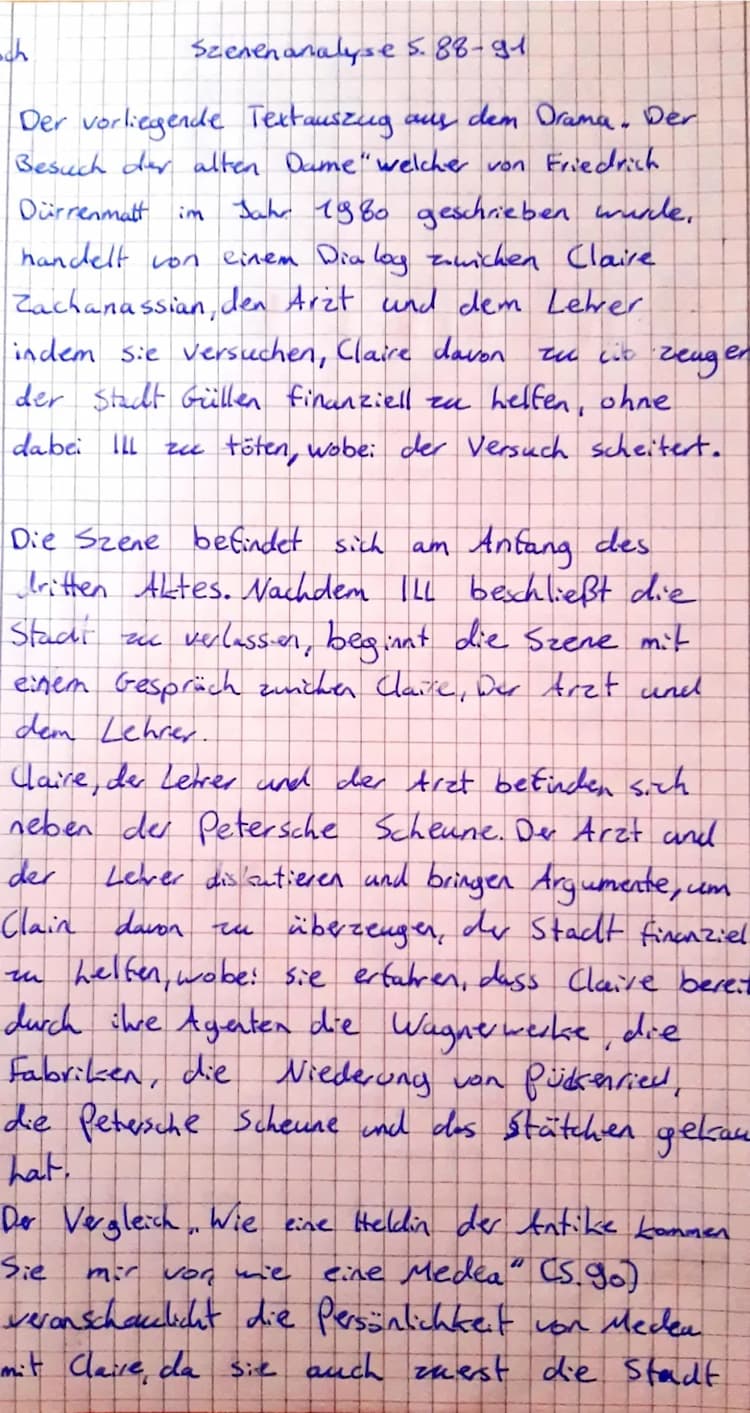 ch Szenenanalyse S. 88-91
Der vorliegende Textauszug aus dem Drama „Der
Besuch der alten Dame" welcher von Friedrich
Dürrenmatt im Jahr 1980 geschrieben wurde,
handelt von einem Dialog zwichen Claire
Zachanassian, den Arzt und dem Lehrer
indem sie versuchen, Claire davon zu üb zeugen
der Stadt Güllen finanziell zu helfen, ohne
dabei Ill zu töten, wobei der Versuch scheitert.
Die Szene befindet sich am Anfang des
dritten Aktes. Nachdem Ill beschließt die
Stadt zu verlassen, beginnt die Szene mit
einem Gespräch zwichen Claire, Der Arzt und
dem Lehrer.
Claire, der Lehrer und der Arzt befinden sich
neben der Petersche Scheune. Der Arzt und
der Lehrer diskutieren und bringen Argumente, um
Clair davon zu überzeugen, der Stadt finanziel
zu helfen, wobei sie erfahren, dass Claire bereit
durch ihre Agenten die Wagnerwerke, die
Fabriken, die Niederung von Pückenried,
die Petersche Scheune und das Stätchen gekau
hat.
Der Vergleich „Wie eine Heldin der Antike kommen
Sie mir vor, wie eine Medea" (S.90)
veranschaulicht die Persönlichkeit von Medea
mit Claire, da sie auch zuerst die Stadt